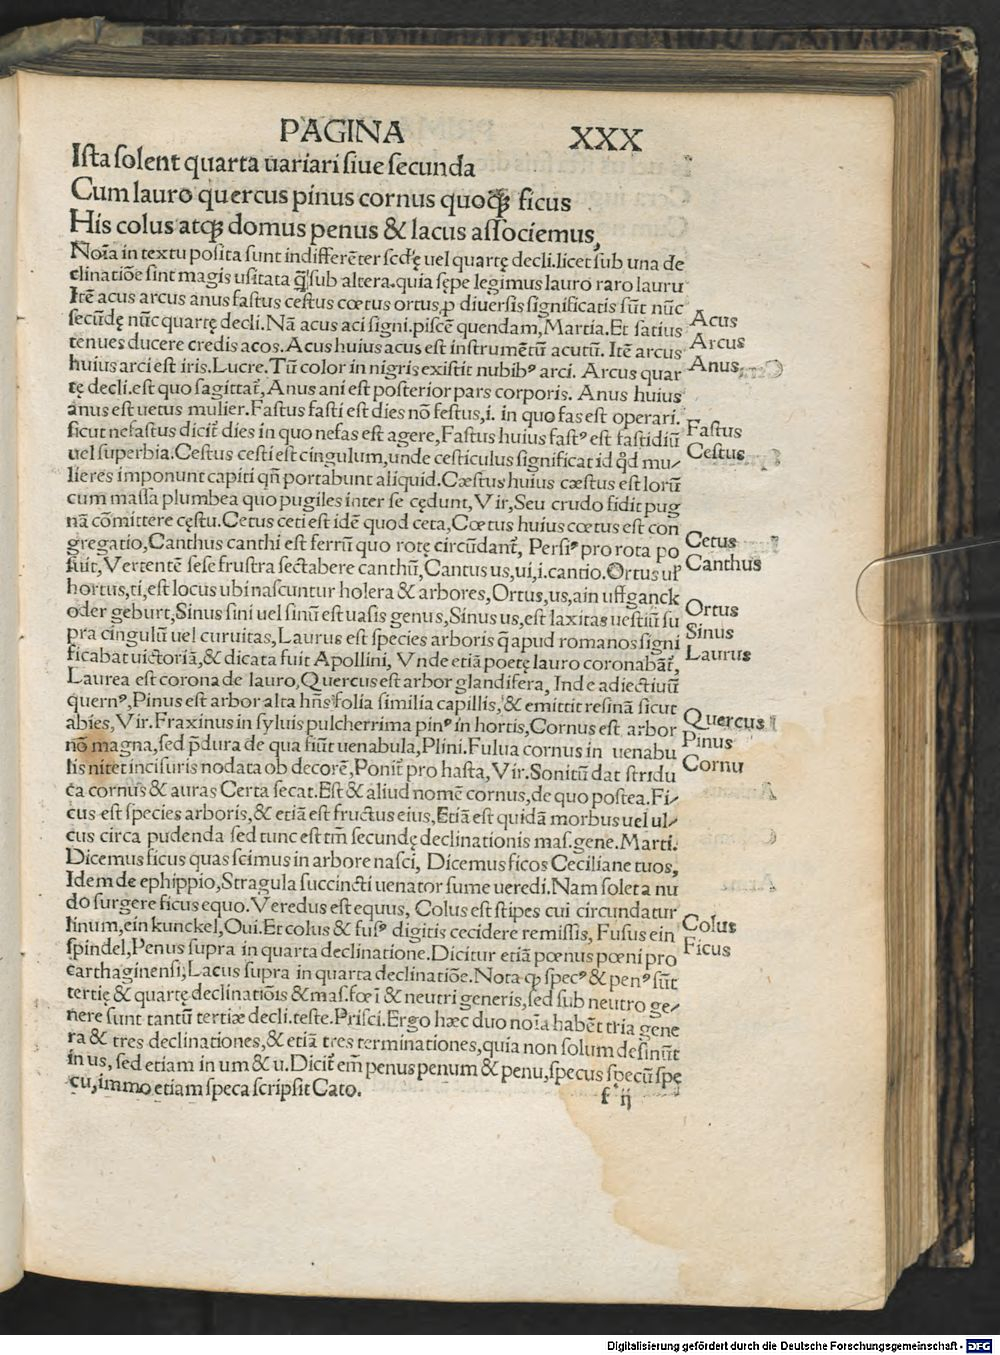 PAGINA XXX
Ista solent quarta uariari siue secunda
Cum lauro quercus pinus cornus quoqꝫ ficus
His colus atqꝫ domus penus & lacus associemus,
Noīa in textu posita sunt indifferēter scd̄ę uel quartę decli.licet sub una de
clinatiōe sint magis usitata q̄ sub altera.quia sępe legimus lauro raro lauru
Itē acus arcus anus fastus cestus cœtus ortus,ꝓ diuersis significatis sūt nūc
secūdę nūc quartę decli.Nā acus aci signi.piscē quendam,Martia.Et satius
tenues ducere credis acos.Acus huius acus est instrumētū acutū. Itē arcus
huius arci est iris.Lucre.Tū color in nigris existit nubibꝰ arci. Arcus quar
tę decli.est quo sagittat̄,Anus ani est posterior pars corporis. Anus huius
anus est uetus mulier.Fastus fasti est dies nō festus,i. in quo fas est operari.
sicut nefastus dicit̄ dies in quo nefas est agere,Fastus huius fastꝰ est fastidiū
uel superbia.Cestus cesti est cingulum,unde cesticulus significat id qd̄ mu⸗
lieres imponunt capiti qn̄ portabunt aliquid.Cæstus huius cæstus est lorū
cum massa plumbea quo pugiles inter se cędunt,Vir,Seu crudo fidit pug
nā cōmittere cęstu.Cetus ceti est idē quod ceta,Cœtus huius cœtus est con
gregatio,Canthus canthi est ferrū quo rotę circūdant̄, Persiꝰ pro rota po
suit,Vertentē sese frustra sectabere canthū,Cantus us,ui,i.cantio.Ortus ul̄
hortus,ti,est locus ubi nascuntur holera & arbores,Ortus,us,ain uffganck
oder geburt,Sinus sini uel sinū est uasis genus,Sinus us,est laxitas uestiū su
pra cingulū uel curuitas,Laurus est species arboris q̄ apud romanos signi
ficabat uictoriā,& dicata fuit Apollini, Vnde etiā poetę lauro coronabāt̄,
Laurea est corona de lauro,Quercus est arbor glandifera, Inde adiectiuū
quernꝰ,Pinus est arbor alta hn̄s folia similia capillis, & emittit resinā sicut
abies,Vir.Fraxinus in syluis pulcherrima pinꝰ in hortis,Cornus est arbor
nō magna,sed p̄dura de qua fiūt uenabula,Plini.Fulua cornus in uenabu
lis nitet incisuris nodata ob decorē,Ponit̄ pro hasta,Vir.Sonitū dat stridu
ca cornus & auras Certa secat.Est & aliud nomē cornus,de quo postea.Fi⸗
cus est species arboris,& etiā est fructus eius,Etiā est quidā morbus uel ul⸗
cus circa pudenda sed tunc est tm̄ secundę declinationis mas.gene.Marti.
Dicemus ficus quas scimus in arbore nasci, Dicemus ficos Ceciliane tuos,
Idem de ephippio,Stragula succincti uenator sume ueredi.Nam solet a nu
do surgere ficus equo.Veredus est equus, Colus est stipes cui circundatur
linum,ein kunckel,Oui.Et colus & fusꝰ digitis cecidere remissis, Fusus ein
spindel,Penus supra in quarta declinatione.Dicitur etiā pœnus pœni pro
carthaginensi;Lacus supra in quarta declinatiōe.Nota ꝙ specꝰ & penꝰ sūt
tertię & quartę declinatiōis & mas.fœ ī & neutri generis,sed sub neutro ge⸗
nere sunt tantū tertiæ decli.teste.Prisci.Ergo hæc duo noīa habēt tria gene
ra & tres declinationes,& etiā tres terminationes,quia non solum desinūt
in us, sed etiam in um & u.Dicit̄ em̄ penus penum & penu,specus specū spe
cu,immo etiam speca scripsit Cato.
f ij
Acus
Arcus
Anus
Fastus
Cestus
Cetus
Canthus
Ortus
Sinus
Laurus
Quercus
Pinus
Cornu
Colus
Ficus
Digitalisierung gefördert durch die Deutsche Forschungsgemeinschaft - DFG